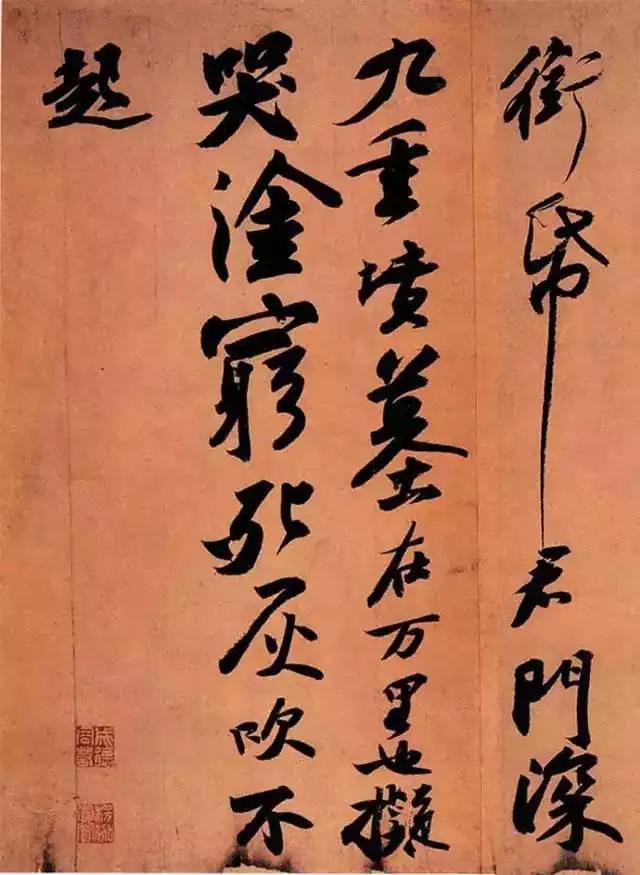 銜帋君門深
九重墳墓在万里也擬
哭塗窮死灰吹不
起